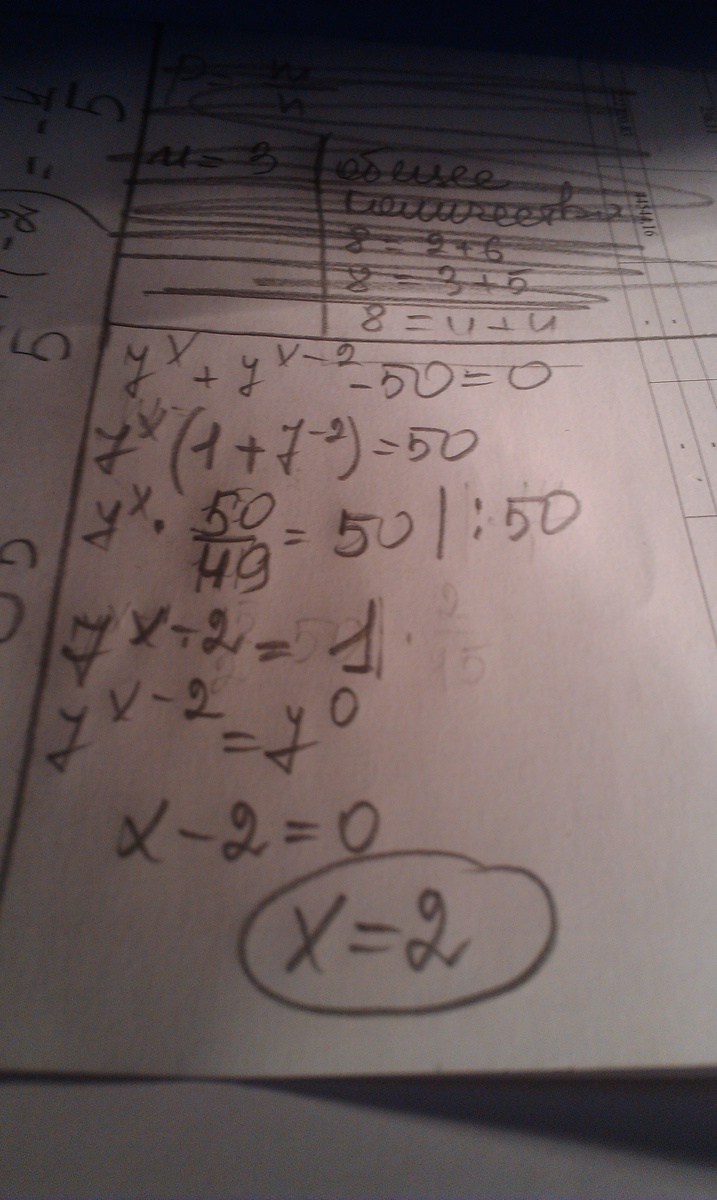 P = m/n
m = 3
общее
количество
8 = 2+6
8 = 3+5
8 = 4+4
7^x + 7^(x-2) - 50 = 0
7^x (1 + 7^-2) = 50
7^x · 50/49 = 50 | : 50
7^(x-2) = 1
7^(x-2) = 7^0
x - 2 = 0
x = 2